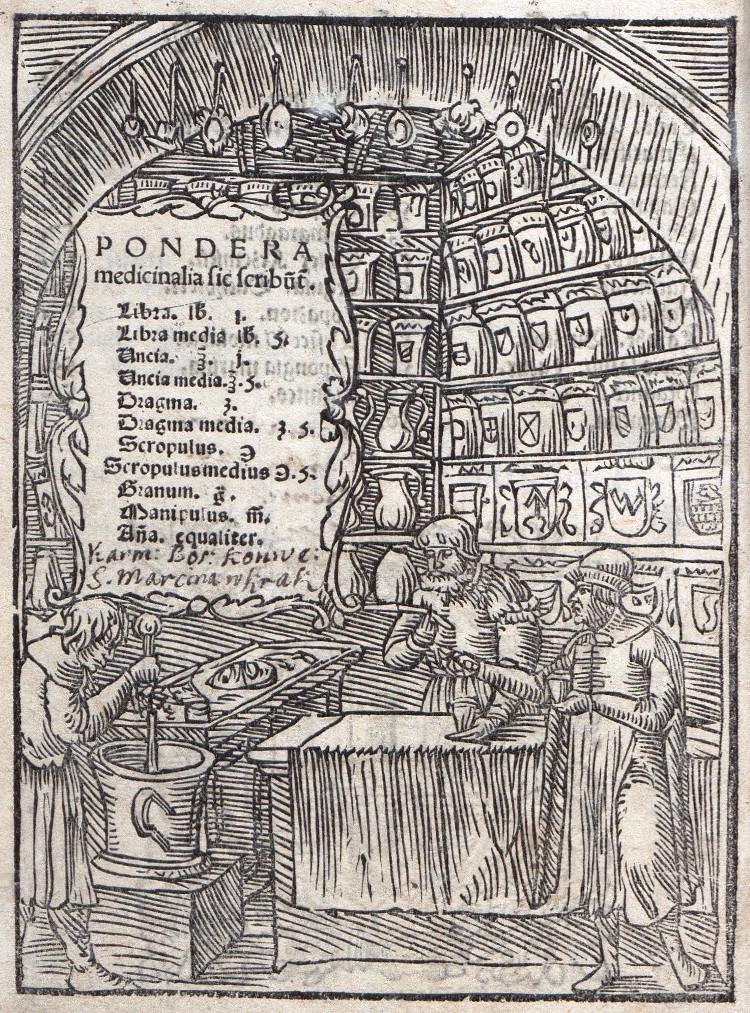 PONDERA
medicinalia sic scribūt.
Libra. lb. j.
Libra media lb. ꝭ.
Uncia. ℥. j.
Uncia media. ℥. ꝭ.
Dragma. ʒ.
Dragma media. ʒ. ꝭ.
Scropulus. ℈
Scropulus medius ℈. ꝭ.
Granum. g̃.
Manipulus. m̃.
Aña. equaliter.
Karm: Bos: Konwe:
S. Marcina w Krak
W